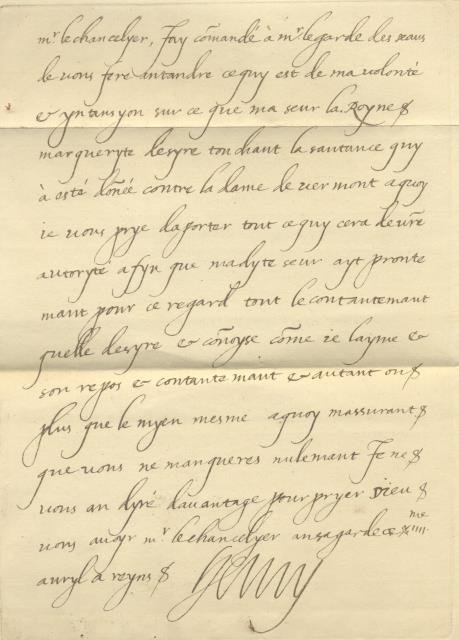 mr. lechancelyer, J'ay cōmandé à mr. legarde des seaus
de vous fere antandre cequy est de ma volonté
& yntansyon sur ce que ma seur la Royne
margueryte desyre touchant la santance quy
à esté dōnée contre la dame de vermont aquoy
ie vous prye daporter tout cequy cera de vr̄e
autoryté afyn que madyte seur ayt pronte
mant pour ce regard tout le contantemant
quelle desyre & cōnoyse cōme ie layme &
son repos & contantemant & autant ou
plus que le myen mesme aquoy massurant
que vous ne manqueres nulemant Je ne
vous an dyré davantage pour pryer Dieu
vous avoyr mr. lechancelyer ansagarde ce 4me
avryl a reyns Henry